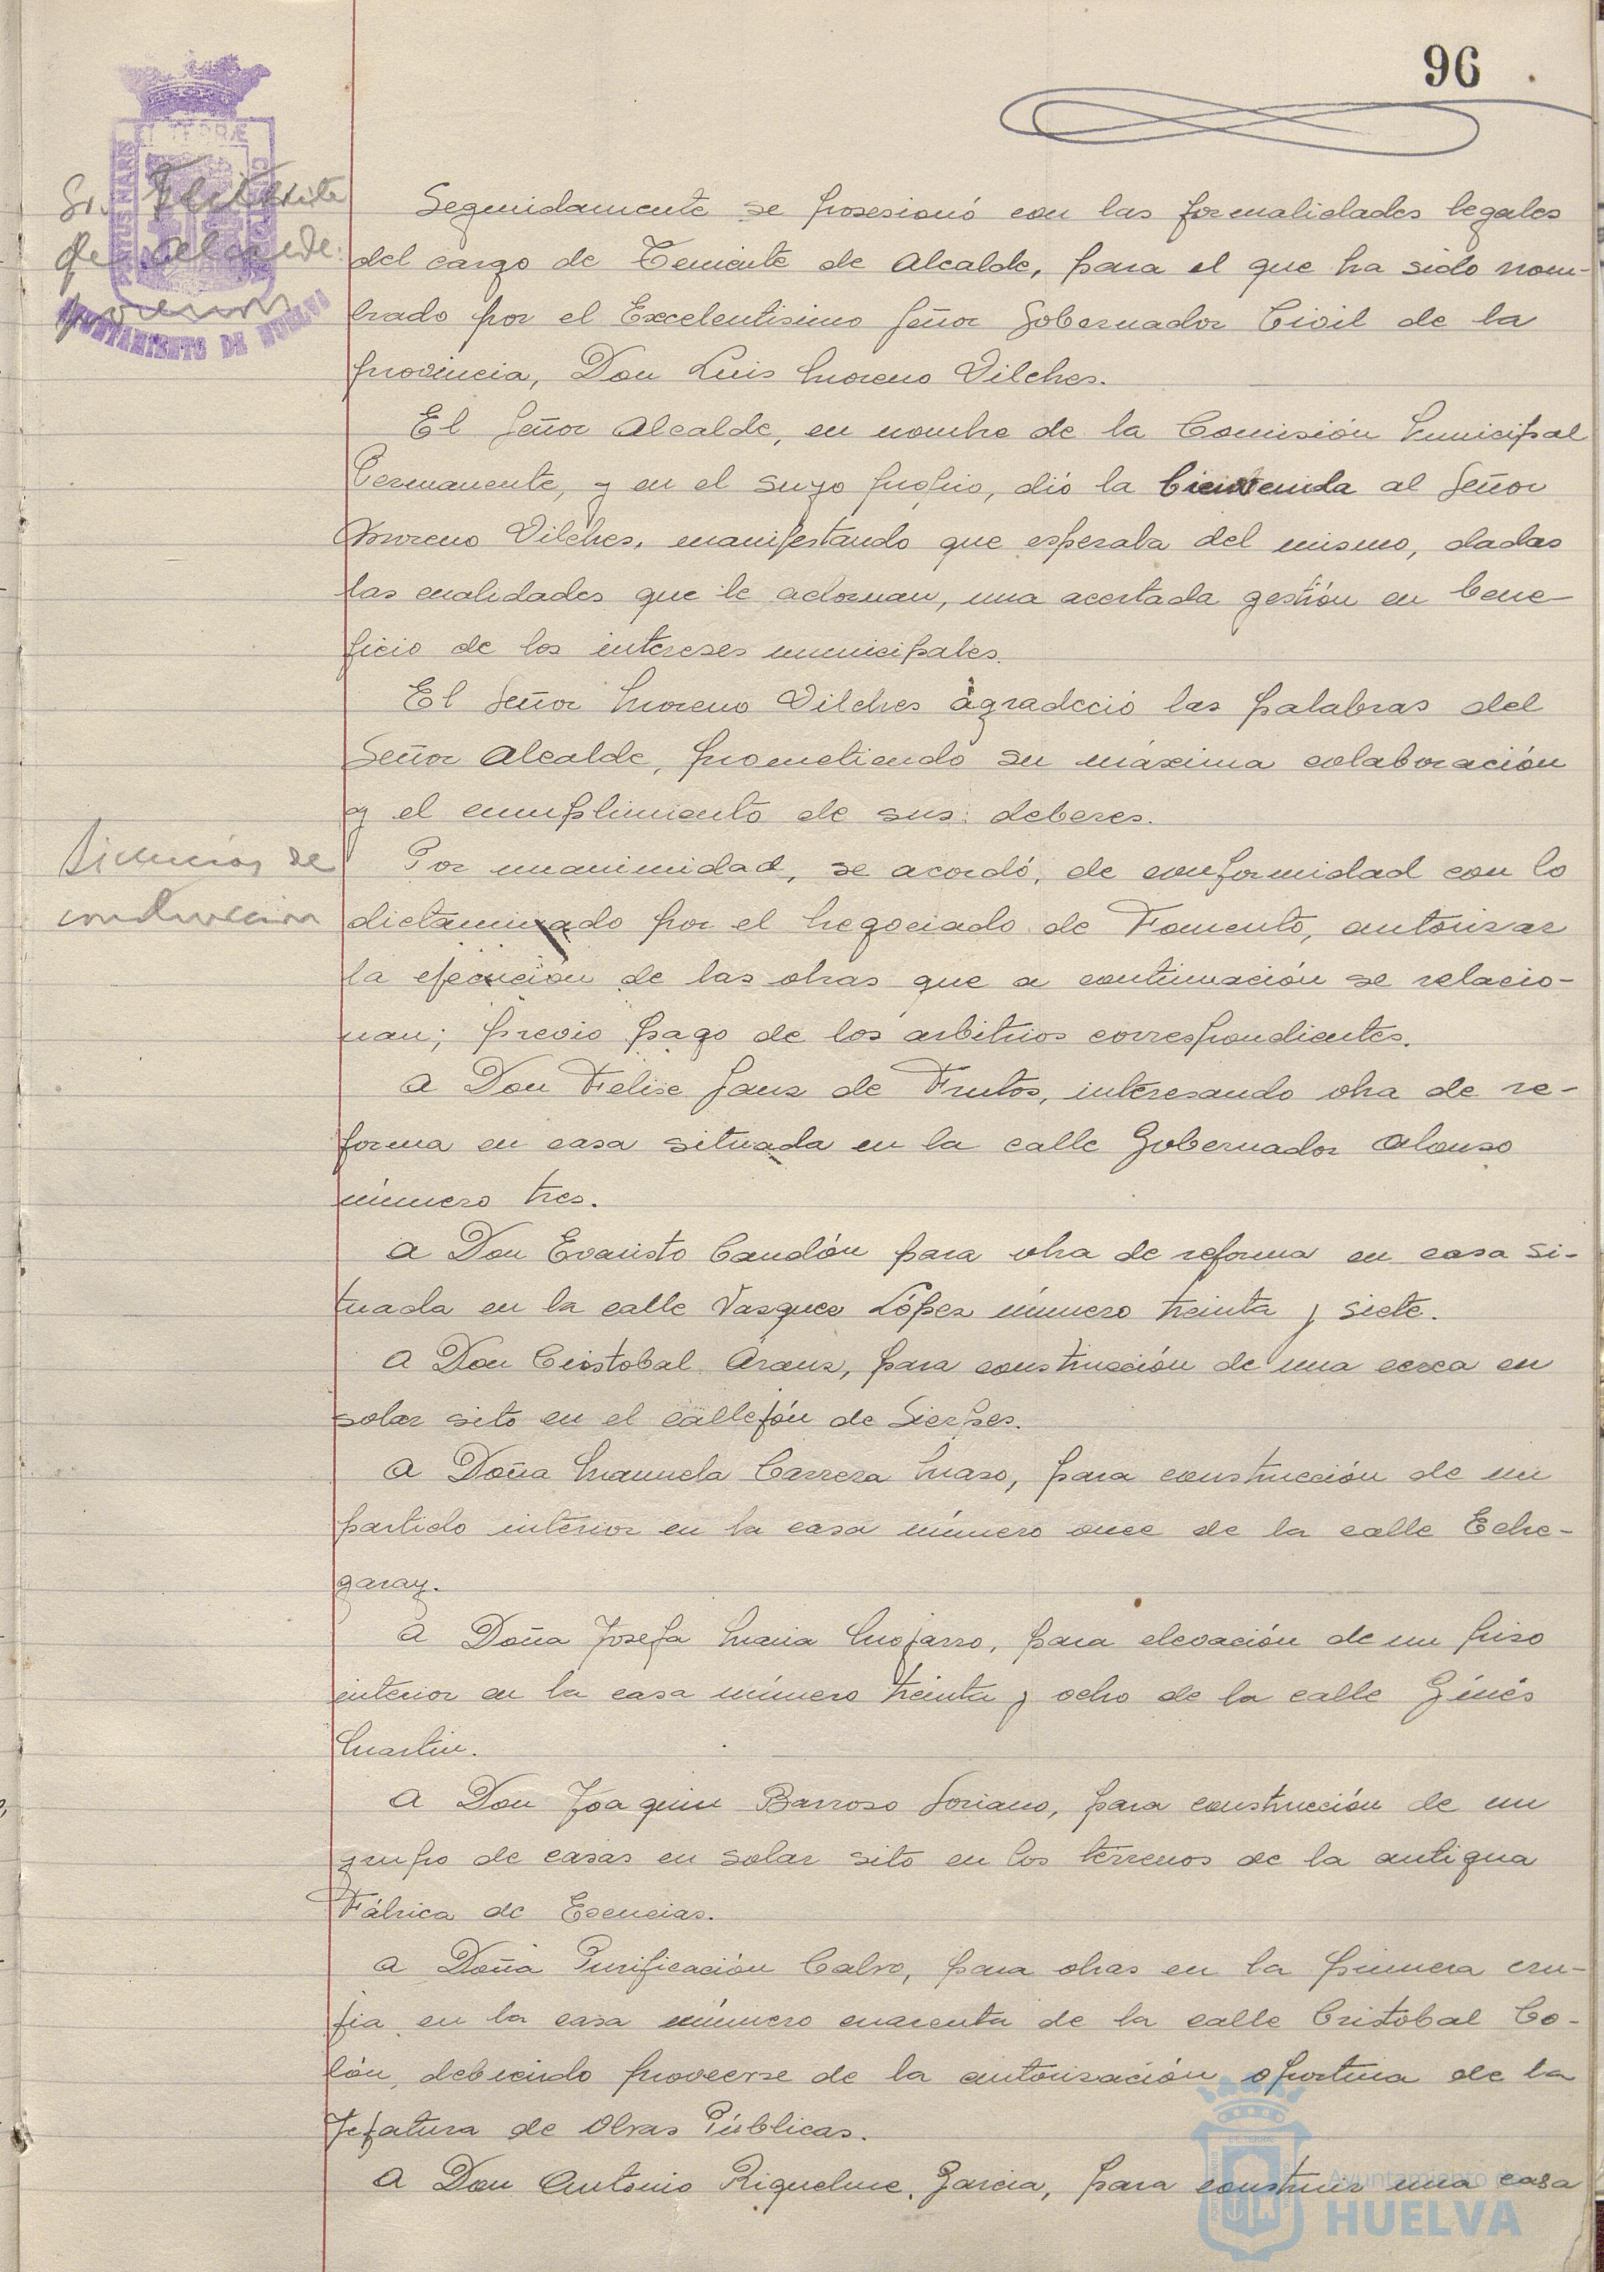 96
Sr. Teniente
de Alcalde.
Seguidamente se posesionó con las formalidades legales
del cargo de Teniente de Alcalde, para el que ha sido nom-
brado por el Excelentisimo Señor Gobernador Civil de la
provincia, Don Luis Moreno Vilches.
El Señor Alcalde, en nombre de la Comisión Municipal
Permanente, y en el suyo propio, dió la bienvenida al Señor
Moreno Vilches, manifestando que esperaba del mismo, dadas
las cualidades que le adornan, una acertada gestión en bene-
ficio de los intereses municipales.
El Señor Moreno Vilches agradeció las palabras del
Señor Alcalde, prometiendo su máxima colaboración
y el cumplimiento de sus deberes.
Licencias de
construccion
Por unanimidad, se acordó, de conformidad con lo
dictaminado por el Negociado de Fomento, autorizar
la ejecución de las obras que a continuación se relacio-
nan; previo pago de los arbitrios correspondientes.
A Don Felise Sanz de Frutos, interesando obra de re-
forma en casa situada en la calle Gobernador Alonso
número tres.
A Don Evaristo Candón para obra de reforma en casa si-
tuada en la calle Vazquez López número treinta y siete.
A Don Cristobal Aranz, para construcción de una cerca en
solar sito en el callejón de Sierpes.
A Doña Manuela Carrera Maso, para construcción de un
partido interior en la casa número once de la calle Eche-
garay.
A Doña Josefa Maria Mojarro, para elevación de un piso
interior en la casa número treinta y ocho de la calle Ginés
Martin.
A Don Joaquin Barroso Soriano, para construcción de un
grupo de casas en solar sito en los terrenos de la antigua
Fábrica de Esencias.
A Doña Purificación Calvo, para obras en la primera cru-
jia en la casa número cuarenta de la calle Cristobal Co-
lón, debiendo proveerse de la autorización oportuna de la
Jefatura de Obras Públicas.
A Don Antonio Riquelme Garcia, para construir una casa
AYUNTAMIENTO DE HUELVA
Ayuntamiento de
HUELVA